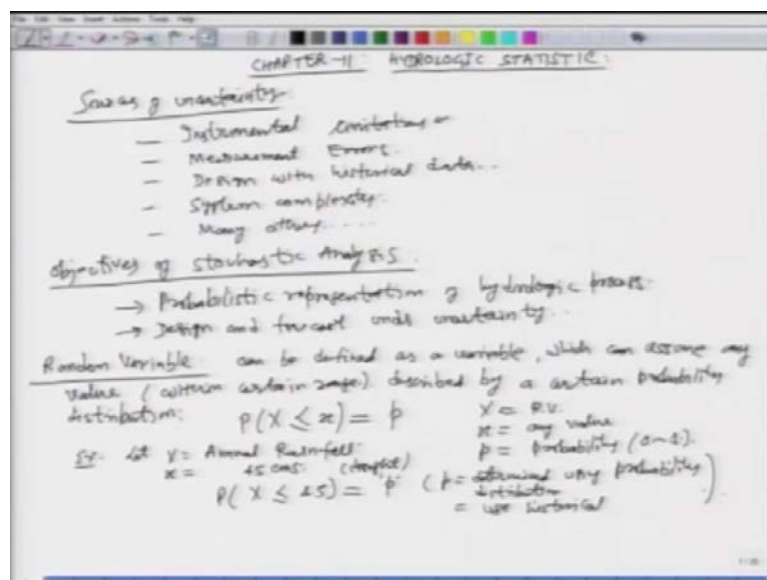 CHAPTER-11: HYDROLOGIC STATISTIC:
Sources of uncertainty:
— Instrumental limitations
— Measurement Errors.
— Design with historical data...
— System complexity.
— Many others.....
Objectives of Stochastic Analysis.
→ Probabilistic representation of hydrologic process.
→ Design and forecast under uncertainty..
Random Variable: can be defined as a variable, which can assume any
value (within certain range) described by a certain probability
distribution:
P(X ≤ x) = p
X = R.V.
x = any value
p = probability (0~1).
Ex. Let X = Annual Rainfall.
x = 45 cms. (drought)
P(X ≤ 45) = 'p' (p = determined using probability
distribution
= use historical)